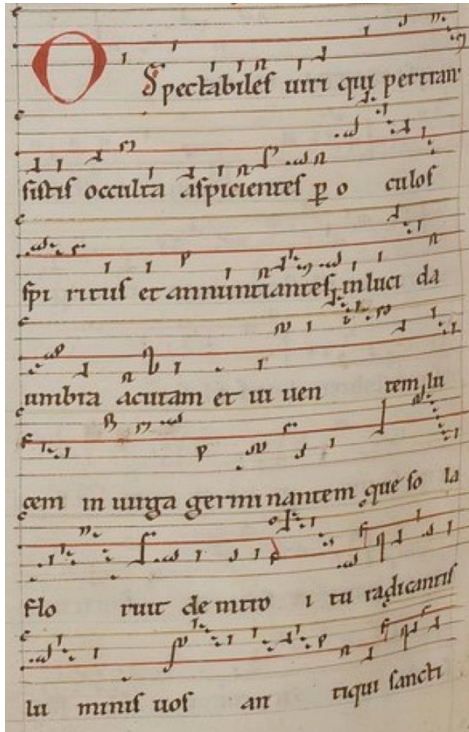 O Spectabiles uiri qui pertran
sistis occulta aspicientes ꝑ o culos
spi ritus et annuntiantes in luci da
umbra acutam et ui uen tem lu
cem in uirga germinantem que so la
flo ruit de intro i tu radicantis
lu minis uos an tiqui sancti